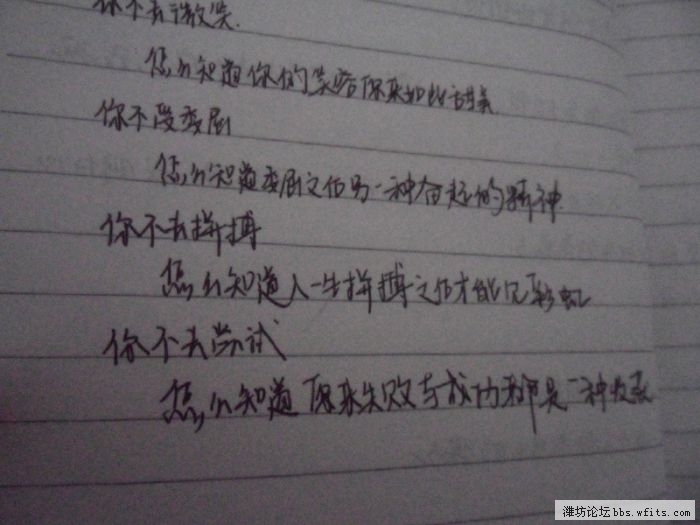 你不去微笑.
怎么知道你的笑容原来如此甜美
你不受委屈
怎么知道委屈之后另一种奋起的精神
你不去拼搏
怎么知道人一生拼搏之后才能见彩虹
你不去尝试
怎么知道原来失败与成功都是一种收获
潍坊论坛 bbs.wfits.com